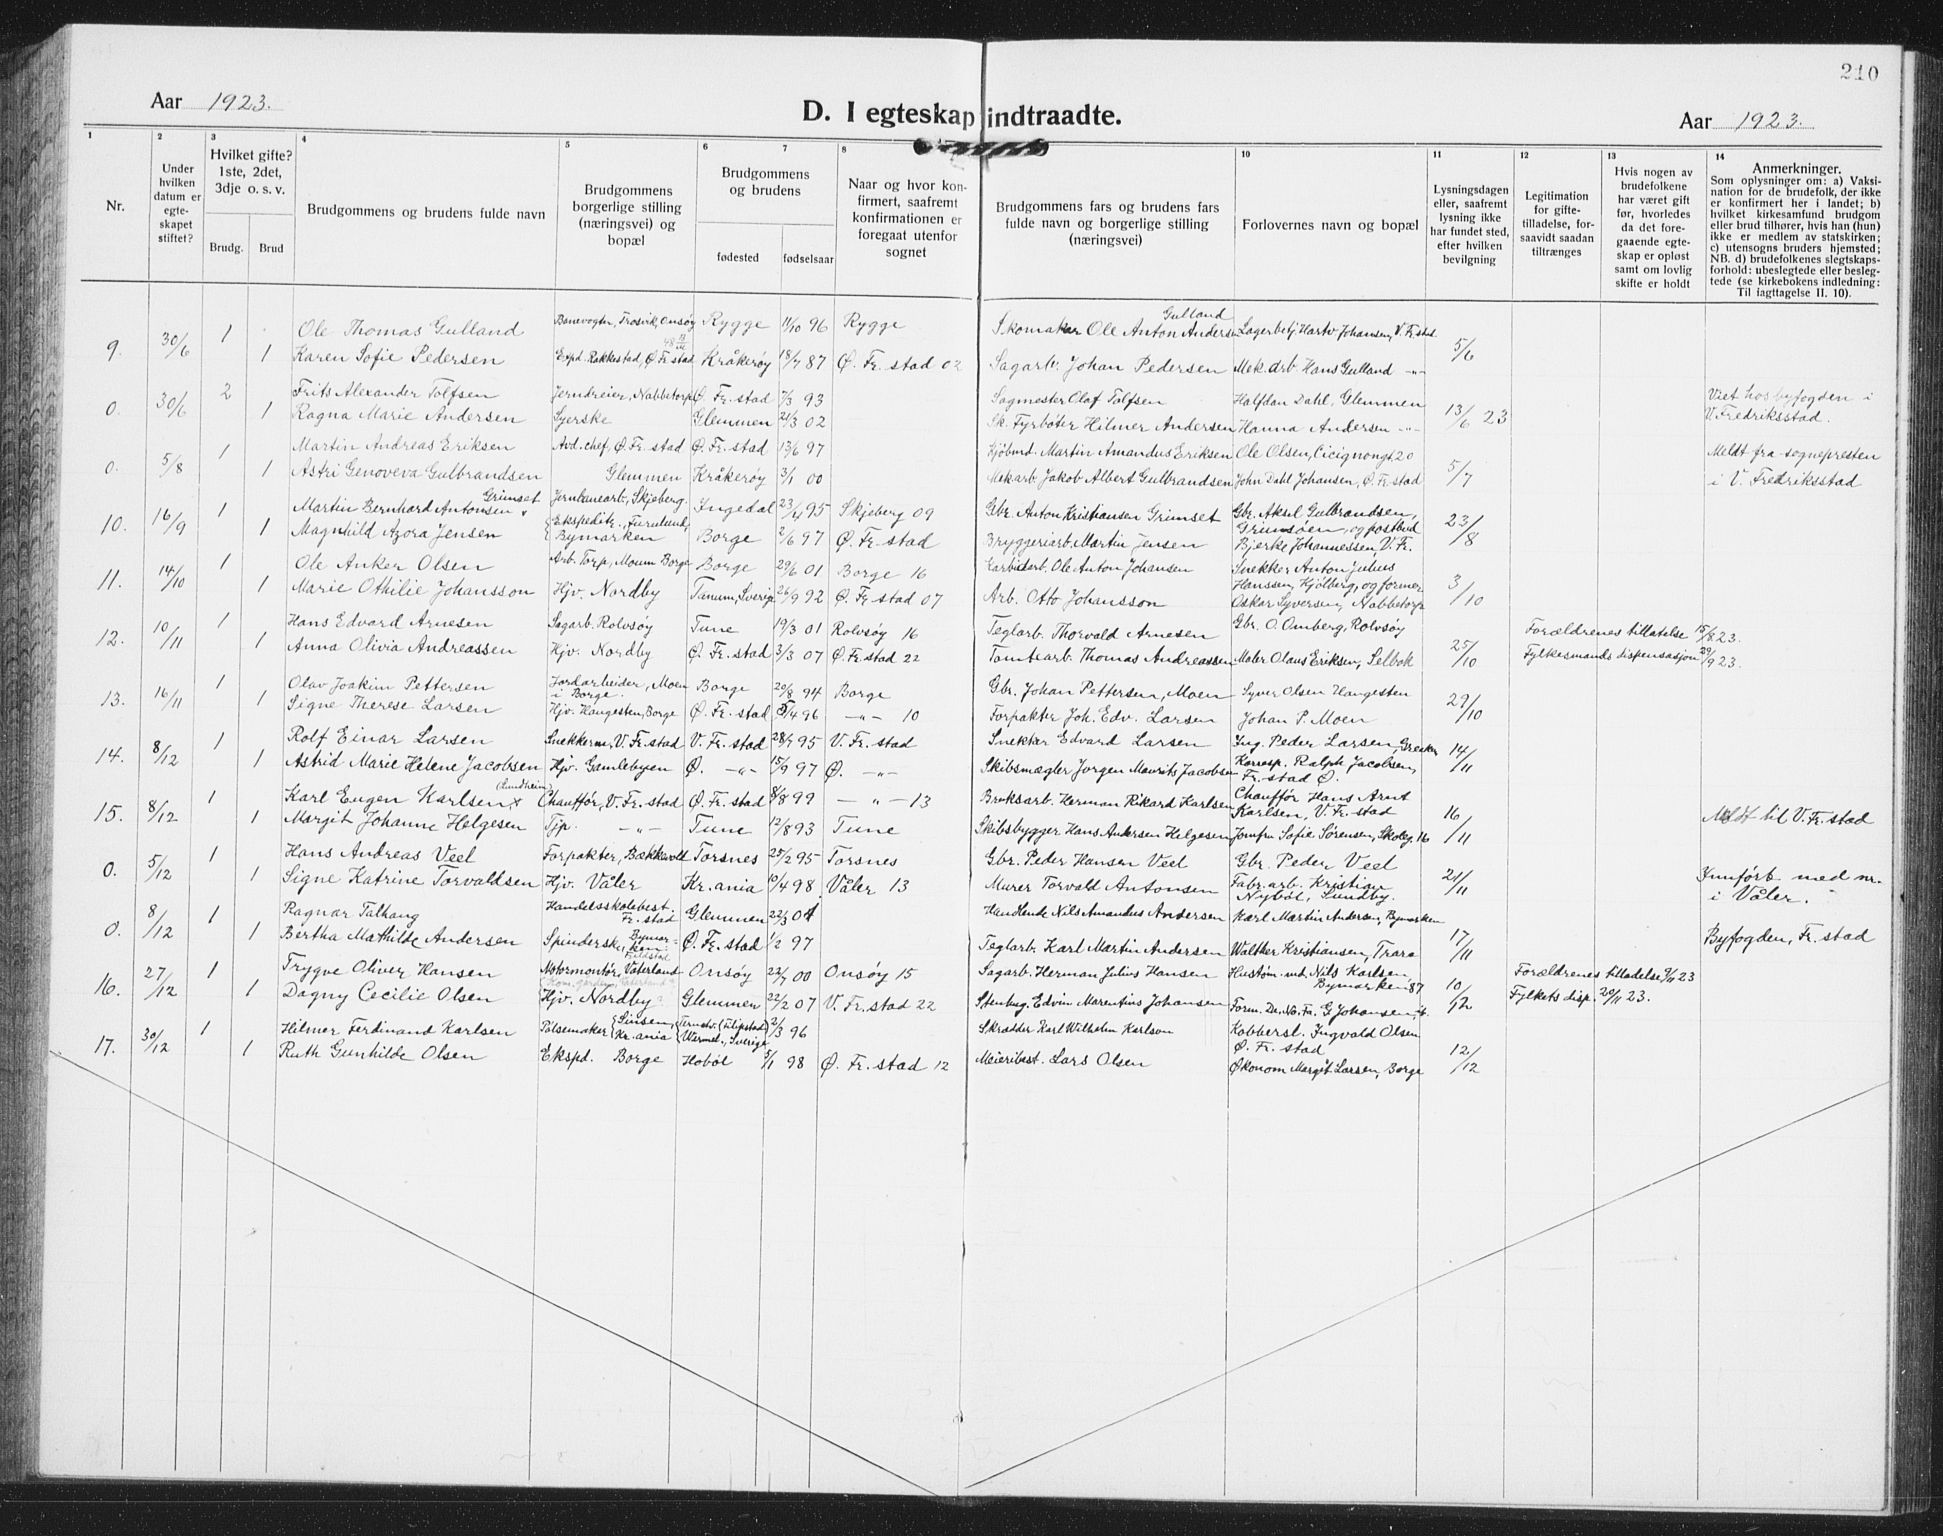 210
Aar 1923.
D. I egteskap indtraadte.
Aar 1923.
1 2 3 4 5 6 7 8 10 11 12 13 14
Nr.
Under hvilken datum er egteskapet stiftet?
Hvilket gifte? 1ste, 2det, 3dje o. s. v.
Brudg. Brud
Brudgommens og brudens fulde navn
Brudgommens borgerlige stilling (næringsvei) og bopæl
Brudgommens og brudens
fødested fødselsaar
Naar og hvor konfirmert, saafremt konfirmationen er foregaat utenfor sognet
Brudgommens fars og brudens fars fulde navn og borgerlige stilling (næringsvei)
Forlovernes navn og bopæl
Lysningsdagen eller, saafremt lysning ikke har fundet sted, efter hvilken bevilgning
Legitimation for giftetilladelse, forsaavidt saadan tiltrænges
Hvis nogen av brudefolkene har været gift før, hvorledes da det foregaaende egteskap er opløst samt om lovlig skifte er holdt
Anmerkninger.
Som oplysninger om: a) Vaksination for de brudefolk, der ikke er konfirmert her i landet; b) hvilket kirkesamfund brudgom eller brud tilhører, hvis han (hun) ikke er medlem av statskirken; c) utensogns bruders hjemsted; NB. d) brudefolkenes slegtskapsforhold: ubeslegtede eller beslegtede (se kirkebokens indledning: Til iagttagelse II. 10).
9. 30/6 1 Ole Thomas Gulland Banevogter, Trosvik, Onsøy Rygge 11/10 96 Rygge Skomaker Ole Anton Andersen Gulland Lagerbetj. Hartv. Johansen, V. Fr.stad 5/6
1 Karen Sofie Pedersen Expd. Rakkestad, Ø. Fr.stad Kråkerøy 18/7 87 Ø. Fr. stad 02 Sagarb. Johan Pedersen Mek. arb. Hans Gulland -"-
0. 30/6 2 Frits Alexander Tolfsen Jerndreier, Nabbetorp Ø. Fr. stad 7/3 93 Sagmester Olaf Tolfsen Halfdan Dahl, Glemmen 13/6 23 Viet hos byfogden i
1 Ragna Marie Andersen Syerske Glemmen 21/3 02 Sk. Fyrbøter Hilmer Andersen Hanna Andersen -"- V. Fredriksstad.
0. 5/8 1 Martin Andreas Eriksen Avd. chef, Ø. Fr. stad Ø. Fr. stad 13/6 97 Kjøbmd. Martin Amandus Eriksen Ole Olsen, Cicignongt. 20 5/7 Meldt fra sognepresten
1 Astri Genoveva Gulbrandsen Glemmen Kråkerøy 3/1 00 Mek arb. Jakob Albert Gulbrandsen John Dahl Johansen, Ø. Fr. stad i V. Fredriksstad
10. 16/9 1 Martin Bernhard Antonsen Grimset Jernbanearb., Skjeberg. Ingedal 23/4 95 Skjeberg 09 Gbr. Anton Kristiansen Grimset Gbr. Aksel Gulbrandsen, Grimsøen, og postbud 23/8
1 Magnhild Azora Jensen Ekspeditr., Furulund, Bymarken Borge 2/6 97 Ø. Fr. stad Bryggeriarb. Martin Jensen Bjerke Johannessen, V. Fr.
11. 14/10 1 Ole Anker Olsen Arb. Torp, Moum Borge Borge 29/6 01 Borge 16 Karbidarb. Ole Anton Johansen Snekker Anton Julius Hanssen, Kjølberg, og former 3/10
1 Marie Othilie Johansson Hjv. Nordby Tanum, Sverige 26/9 92 Ø. Fr stad 07 Arb. Otto Johansson Oskar Syversen, Nabbetorp
12. 10/11 1 Hans Edvard Arnesen Sagarb. Rolvsøy Tune 19/3 01 Rolvsøy 16 Teglarb. Thorvald Arnesen Gbr. O. Omberg, Rolvsøy 25/10 Forældrenes tillatelse 15/8 23.
1 Anna Olivia Andreassen Hjv. Nordby Ø. Fr. stad 3/3 07 Ø. Fr. stad 22 Tomtearb. Thomas Andreassen Maler Olaus Eriksen, Selbak Fylkesmands dispensasjon 29/9 23.
13. 16/11 1 Olav Joakim Pettersen Jordarbeider, Moen i Borge. Borge 20/8 94 Borge Gbr. Johan Pettersen, Moen Syver Olsen Haugesten 29/10
1 Signe Therese Larsen Hjv. Haugesten, Borge Ø. Fr. stad 5/4 96 -"- 10 Forpakter Joh. Edv. Larsen Johan P. Moen
14. 8/12 1 Rolf Einar Larsen Snekkerm, V. Fr. stad V. Fr. stad 28/7 95 V. Fr. stad Snekker Edvard Larsen Ing. Peder Larsen, Greaker 14/11
1 Astrid Marie Helene Jacobsen Hjv. Gamlebyen Ø. -"- 15/9 97 Ø. -"- Skibsmægler Jørgen Mauritz Jacobsen Korresp. Ralph Jacobsen, Fr. stad Ø.
15. 8/12 1 Karl Eugen Karlsen (Lundheim) Chauffør, V. Fr. stad Ø. Fr. stad 8/8 99 -"- 13 Bruksarb. Herman Rikard Karlsen Chauffør Hans Arnt Karlsen, V. Fr. stad 16/11 Meldt til V. Fr. stad
1 Margit Johanne Helgesen Tjp. -"- Tune 12/8 93 Tune Skibsbygger Hans Andersen Helgesen Jomfru Sofie Sørensen, Skoleg. 16
0. 5/12 1 Hans Andreas Veel Forpakter, Bækkevold Torsnes 25/2 95 Torsnes Gbr. Peder Hansen Veel Gbr. Peder Veel 21/11 Innførb med nr.
1 Signe Katrine Torvaldsen Hjv. Våler Kr.ania 10/4 98 Våler 13 Murer Torvald Antonsen Fabr. arb. Kristian Nybøl, Sundby. i Våler.
0. 8/12 1 Ragnar Talhaug Handelsskolebest. Fr. stad Glemmen 22/3 01 Handlende Nils Amandus Andersen Karl Martin Andersen, Bymarken 17/11 Byfogden, Fr. stad
1 Bertha Mathilde Andersen Spinderske, Bymarken. Ø. Fr. stad 1/2 97 Teglarb. Karl Martin Andersen Walther Kristiansen, Trara
16. 27/12 1 Trygve Oliver Hansen Motormontør, Vaterland Onsøy 22/7 00 Onsøy 15 Sagarb. Herman Julius Hansen Hustøm.md. Nils Karlsen, Bymarken 87 10/12 Forældrenes tilladelse 9/11 23
1 Dagny Cecilie Olsen Hjv. Nordby Glemmen 22/2 07 V. Fr. stad 22 Stenhug. Edvin Marentius Johansen Form. De. No. Fa. G Johansen Fylkets disp. 20/11 23.
17. 30/12 1 Hilmer Ferdinand Karlsen Pølsemaker Sinsen, Kr. ania Ternelv. (Filipstad) Wermel., Sverige 2/3 96 Skrædder Karl Wilhelm Karlson Kobbersl. Ingvald Olsen Ø. Fr. stad
1 Ruth Gunhilde Olsen Ekspd. Borge Hobøl 5/1 98 Ø. Fr. stad 12 Meieribest. Lars Olsen Økonom Margit Larsen, Borge 12/12